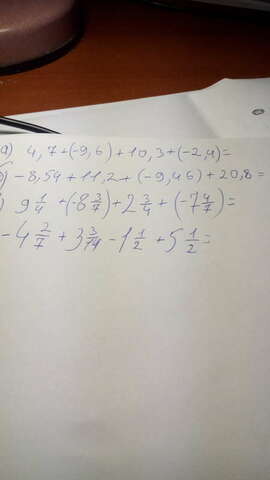 а) 4,7+(-9,6)+10,3+(-2,4)=
б) -8,54+11,2+(-9,46)+20,8=
) 9 1/4 +(-8 3/7)+2 3/4+(-7 4/7)=
-4 2/7 + 3 3/14 - 1 1/2 + 5 1/2=